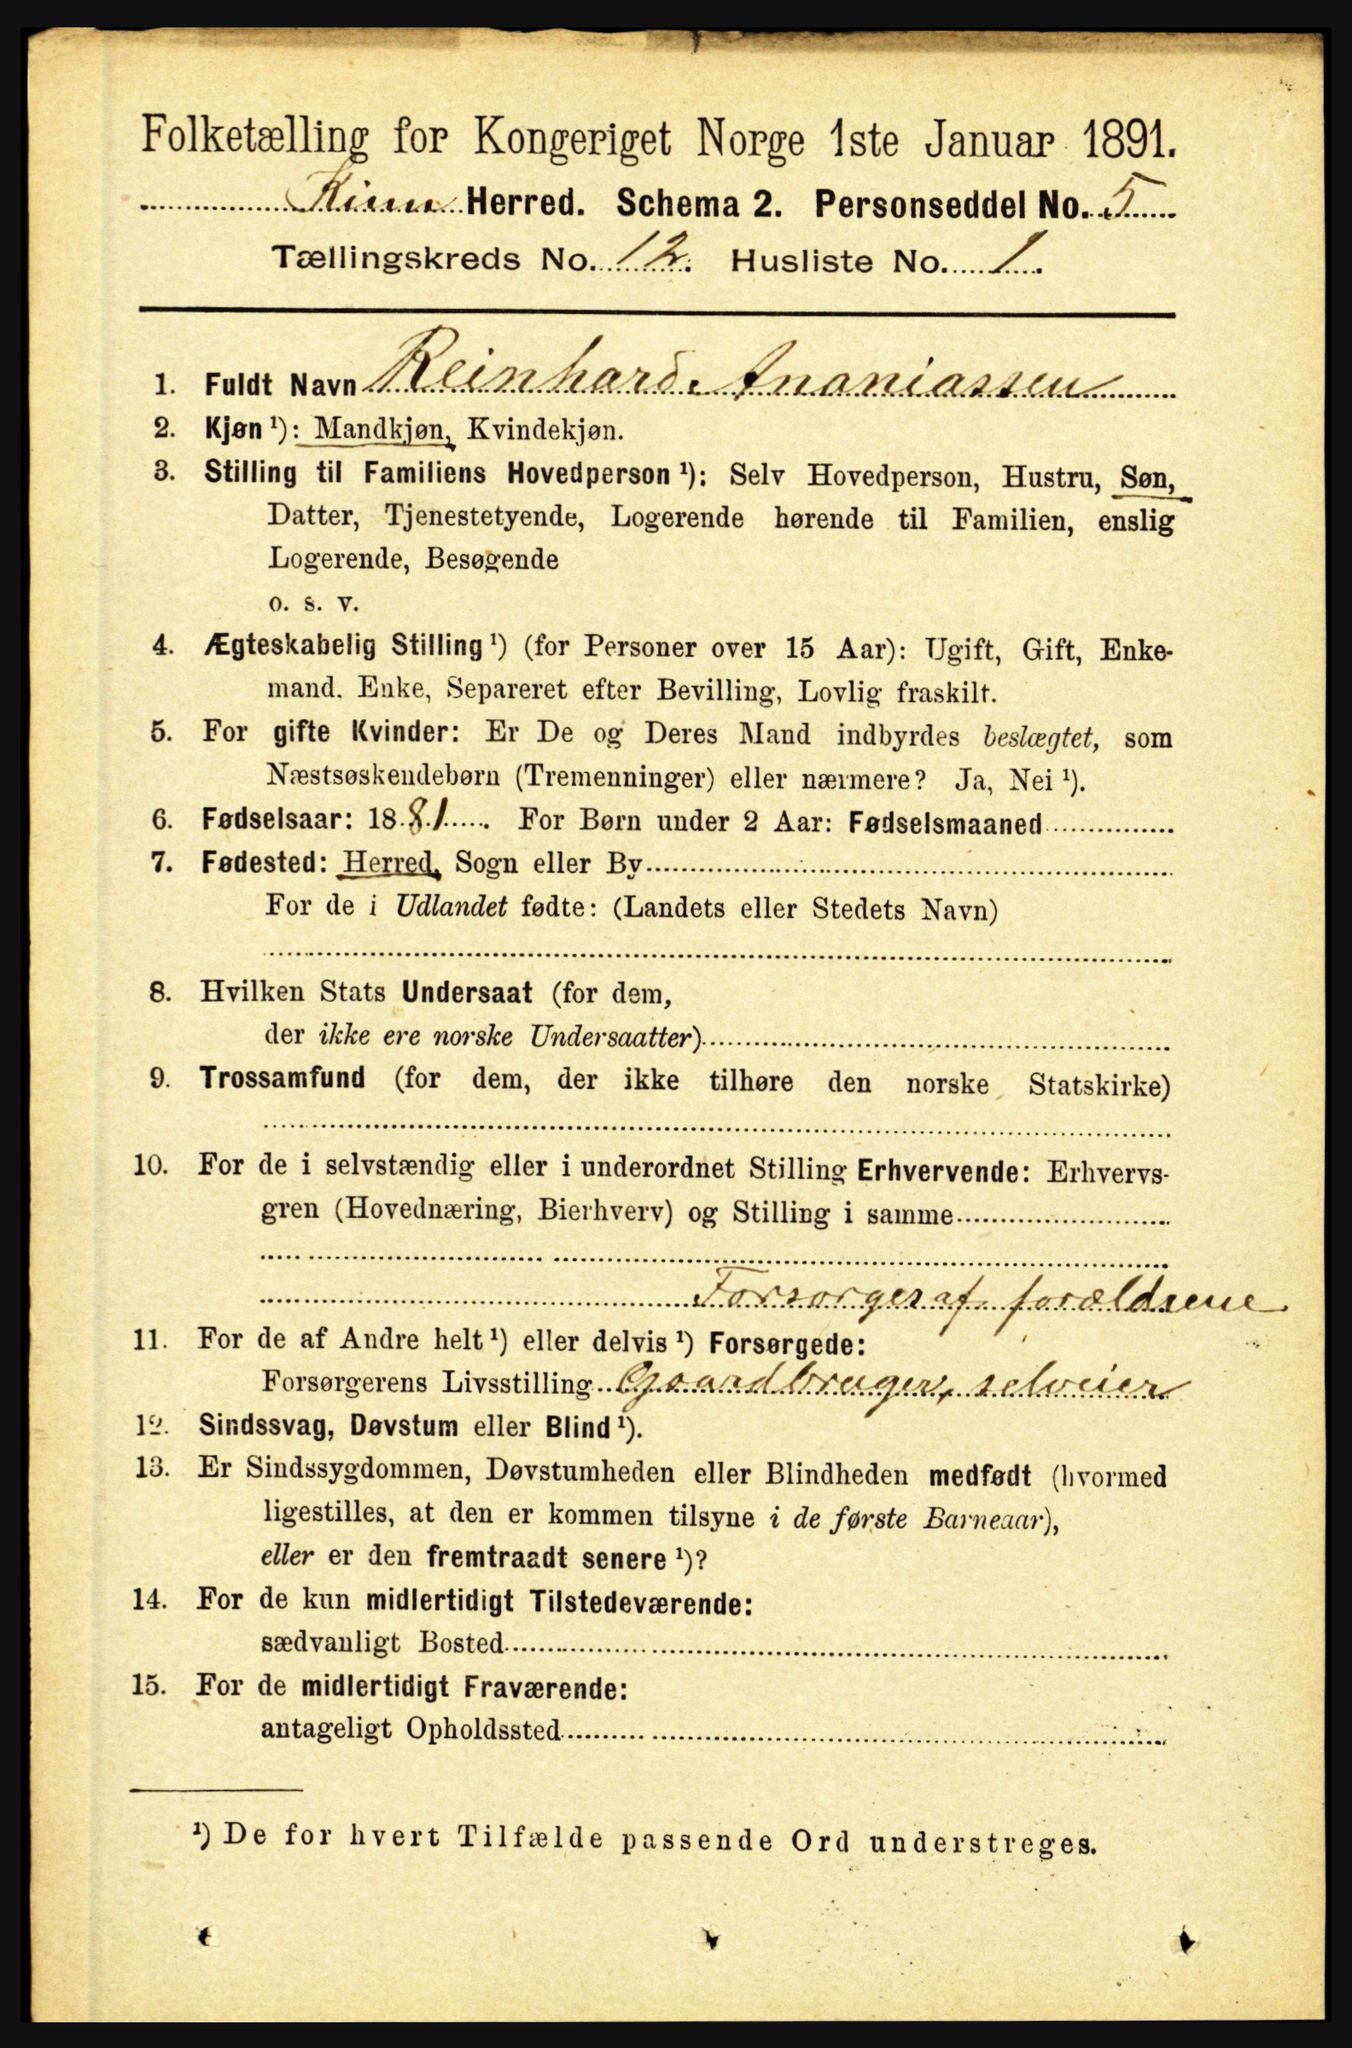 Folketælling for Kongeriget Norge 1ste Januar 1891.
Kinn Herred. Schema 2. Personseddel No. 5
Tællingskreds No. 12. Husliste No. 1.
1. Fuldt Navn Reinhard Ananiassen
2. Kjøn ¹): Mandkjøn, Kvindekjøn.
3. Stilling til Familiens Hovedperson ¹): Selv Hovedperson, Hustru, Søn,
Datter, Tjenestetyende, Logerende hørende til Familien, enslig
Logerende, Besøgende
o. s. v.
4. Ægteskabelig Stilling ¹) (for Personer over 15 Aar): Ugift, Gift, Enke-
mand. Enke, Separeret efter Bevilling, Lovlig fraskilt.
5. For gifte Kvinder: Er De og Deres Mand indbyrdes beslægtet, som
Næstsøskendebørn (Tremenninger) eller nærmere? Ja, Nei ¹).
6. Fødselsaar: 1881. For Børn under 2 Aar: Fødselsmaaned
7. Fødested: Herred, Sogn eller By
For de i Udlandet fødte: (Landets eller Stedets Navn)
8. Hvilken Stats Undersaat (for dem,
der ikke ere norske Undersaatter)
9. Trossamfund (for dem, der ikke tilhøre den norske Statskirke)
10. For de i selvstændig eller i underordnet Stilling Erhvervende: Erhvervs-
gren (Hovednæring, Bierhverv) og Stilling i samme
Forsørges af forældrene
11. For de af Andre helt ¹) eller delvis ¹) Forsørgede:
Forsørgerens Livsstilling Gaardbruger, selveier
12. Sindssvag, Døvstum eller Blind ¹).
13. Er Sindssygdommen, Døvstumheden eller Blindheden medfødt (hvormed
ligestilles, at den er kommen tilsyne i de første Barneaar),
eller er den fremtraadt senere ¹)?
14. For de kun midlertidigt Tilstedeværende:
sædvanligt Bosted
15. For de midlertidigt Fraværende:
antageligt Opholdssted
¹) De for hvert Tilfælde passende Ord understreges.